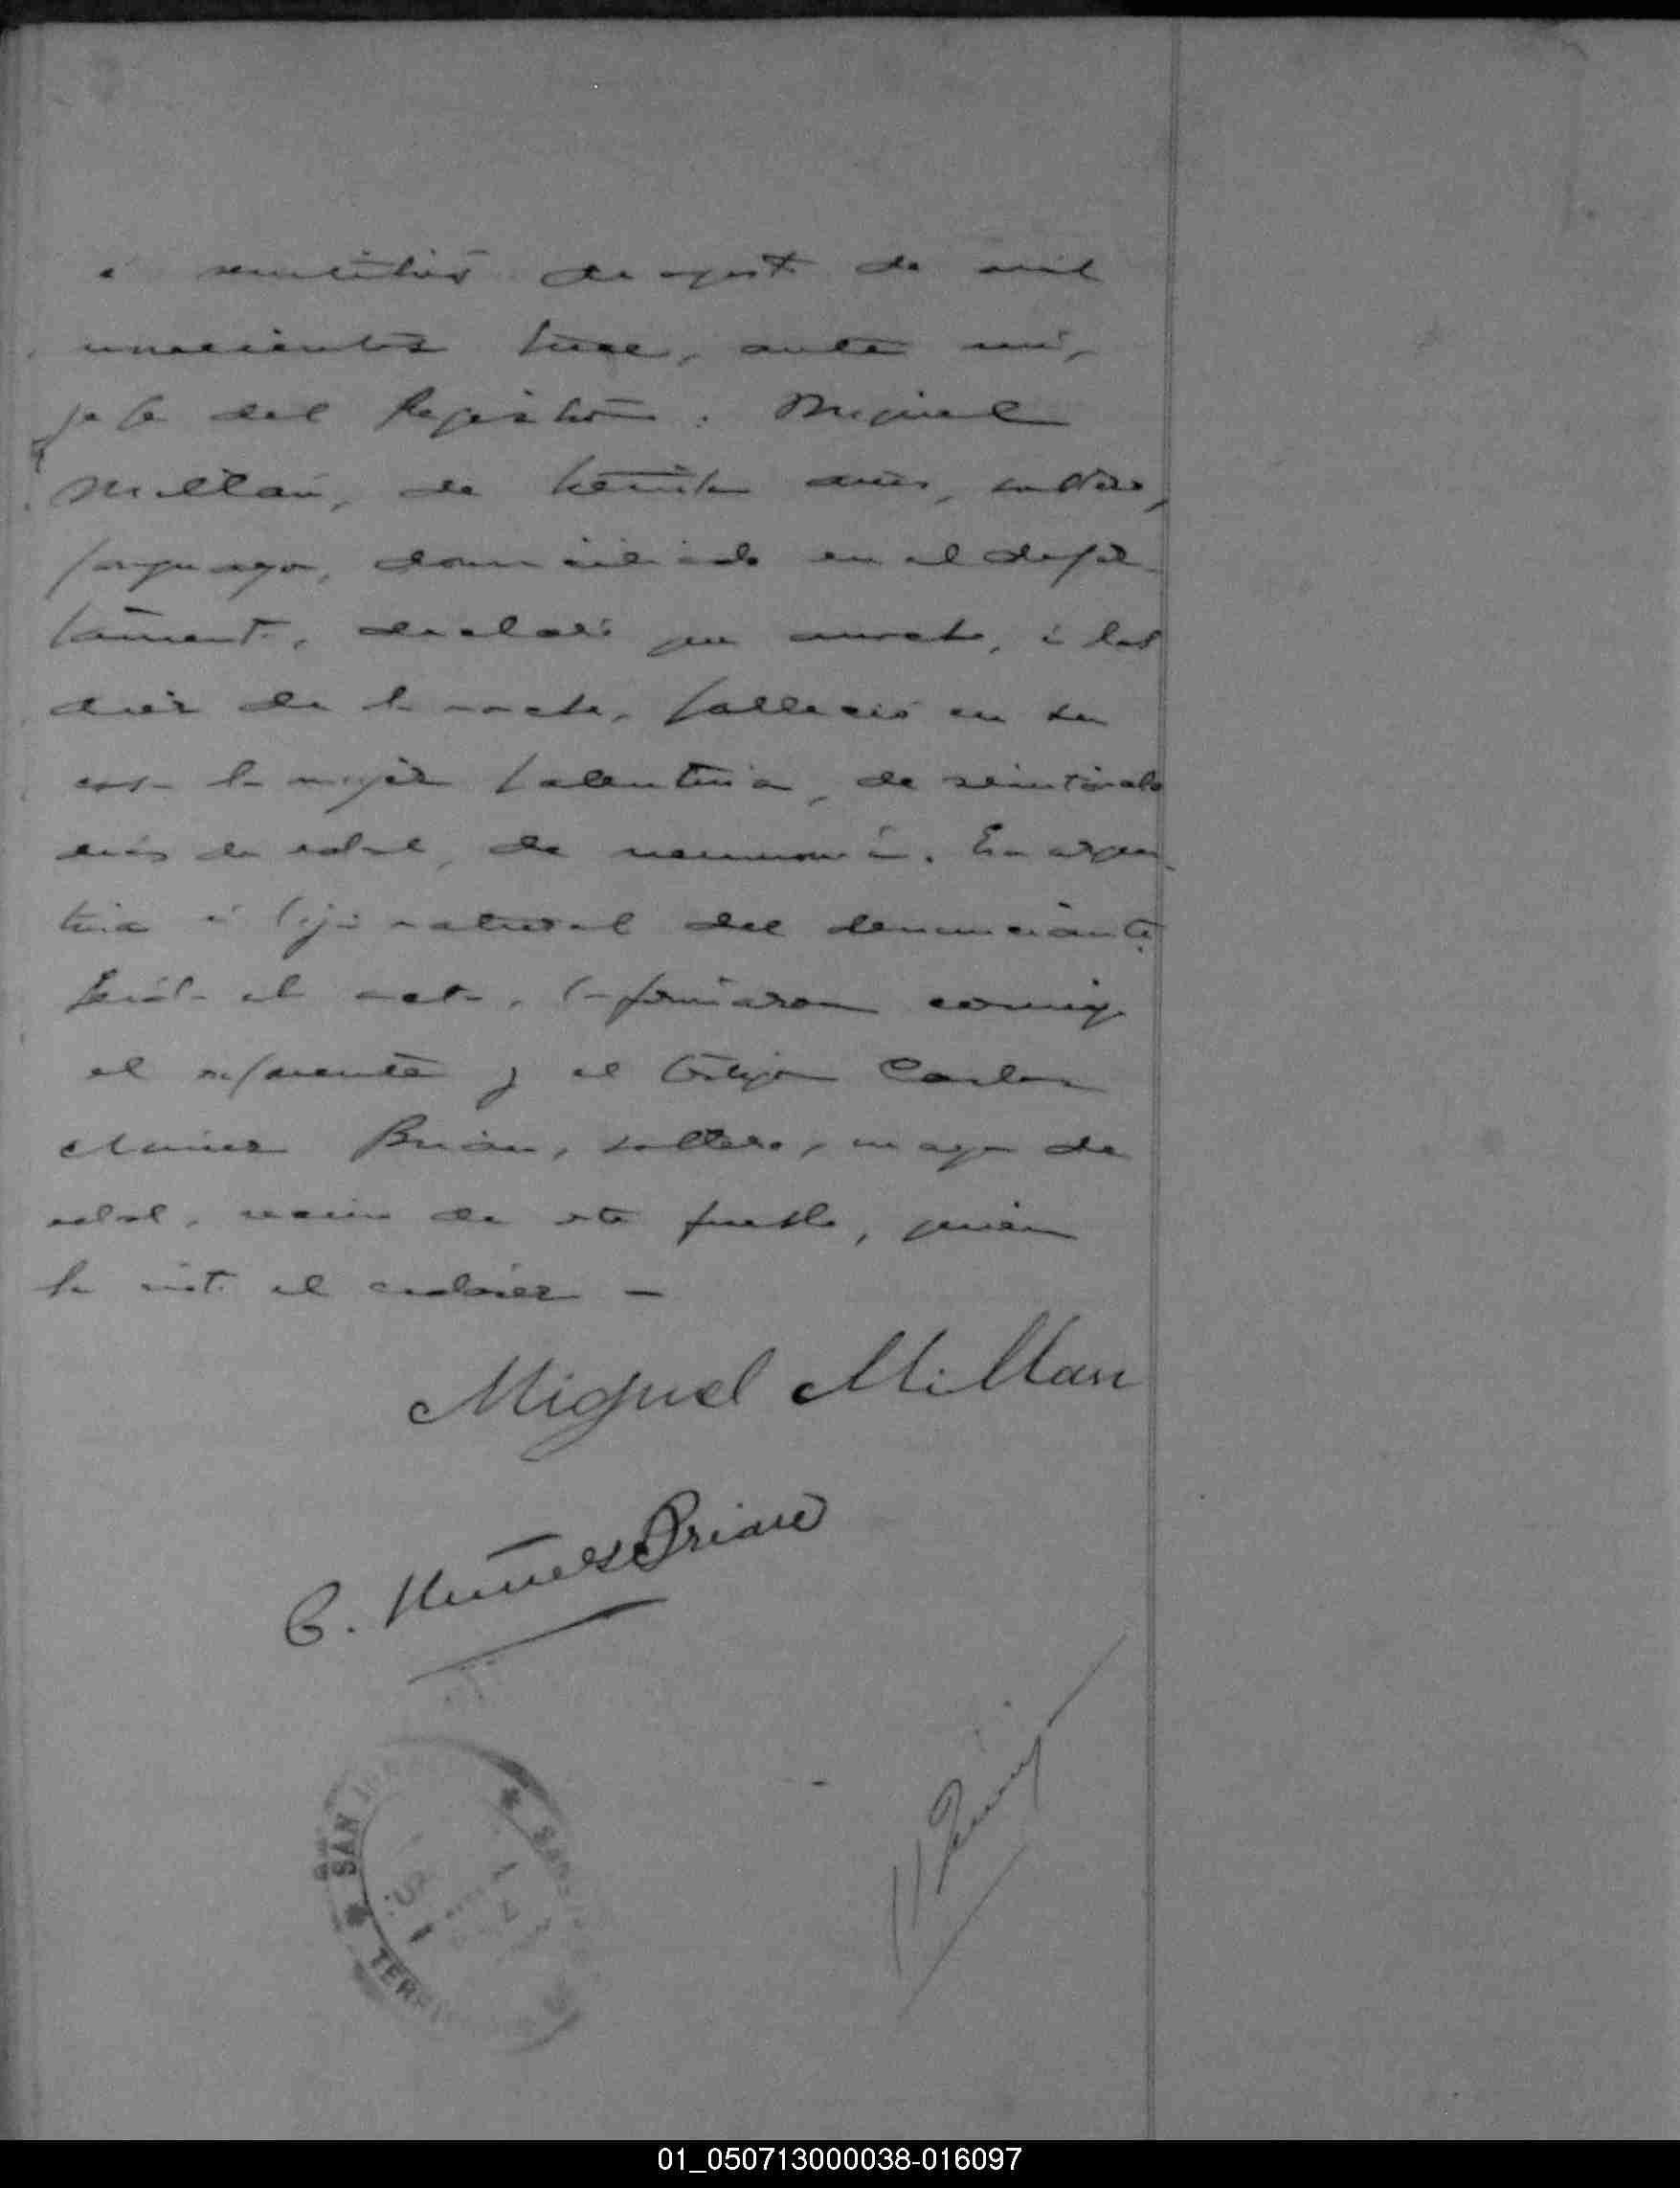 á veintitres de agosto de mil
novecientos trece, ante mi,
jefe del Registro: Miguel
Millan, de treinta años, soltero,
paraguayo, domiciliado en el depar-
tamento, declaró que anoche, á las
diez de la noche, falleció en su
casa la mujer Valentina, de veinticuatro
dias de edad, de neumonia. Era argen-
tina é hija natural del denunciante.
Leida el acta, la firmaron conmigo
el exponente y el testigo Carlos
Nuñez Brian, soltero, mayor de
edad, vecino de este pueblo, quien
ha visto el cadaver —
Miguel Millan
C. Nuñez Brian
* SAN
* TERRI
01_050713000038-016097